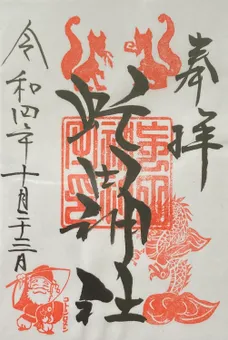 奉拝
蛇田神社
令和四年十月二十三日